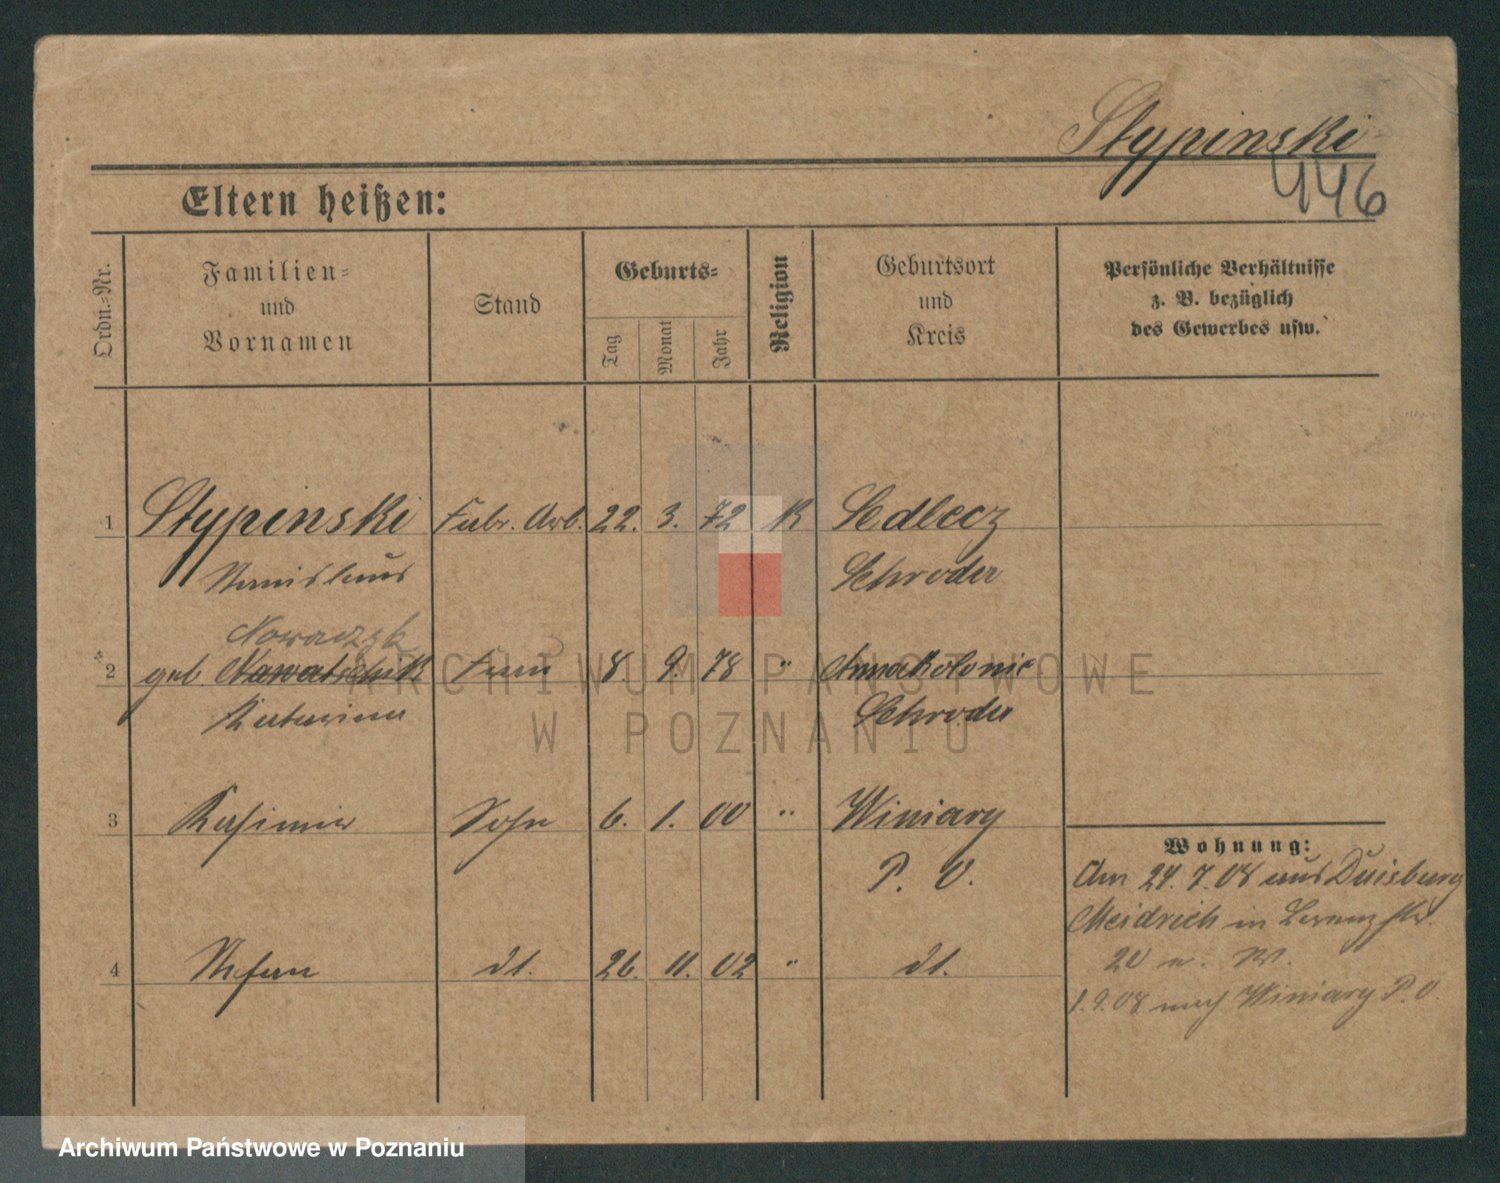 Stypinski
446
Eltern heißen:
Ordn.-Nr.
Familien- und Vornamen
Stand
Geburts-
Tag
Monat
Jahr
Religion
Geburtsort und Kreis
Persönliche Verhältnisse
z. B. bezüglich
des Gewerbes usw.
1 Stypinski Fabr. Arb. 22. 3. 72 K Sedlecz
Stanislaus Schroda
Nowaczyk
2 geb. Nawatschik Frau 8. 9. 78 " Annakolonie
Katarina Schroda
3 Kasimir Sohn 6. 1. 00 " Winiary
P. O.
Wohnung:
Am 24. 7. 08 aus Duisburg
Meidrich in
20
4 Stefan dt. 26. 11. 02 " dt.
1. 9. 08 nach Winiary P. O.
ARCHIWUM PAŃSTWOWE
W POZNANIU
Archiwum Państwowe w Poznaniu